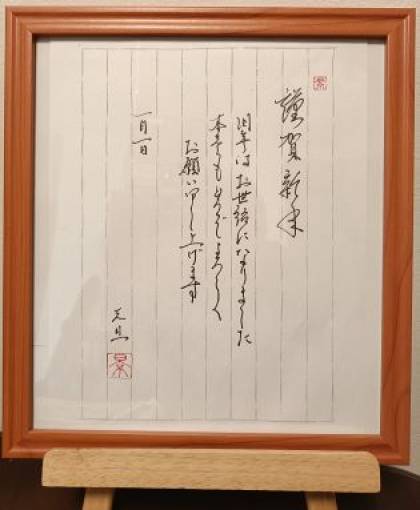 謹賀新年
旧年はお世話になりました
本年もよろしく
お願い申し上げます
一月一日